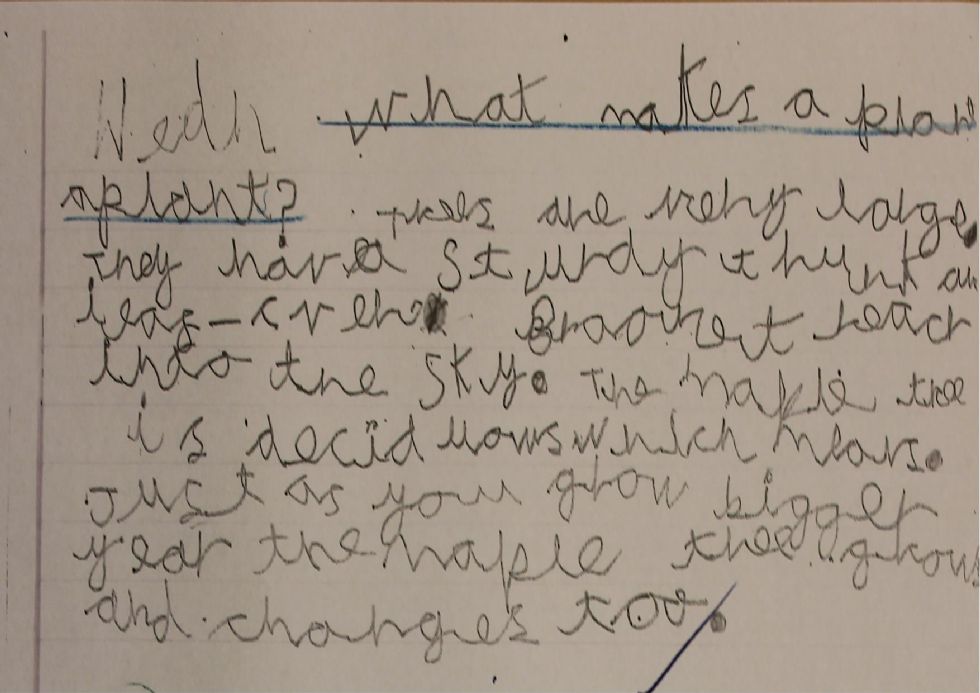 What makes a plan
aplant? Trees are very large.
They have a sturdy thunk an
leag-cven. Branchest reach
into the sky. The maple tree
is deciduouswhich means.
Just as you grow bigger
year the maple tree grows
and changes too.